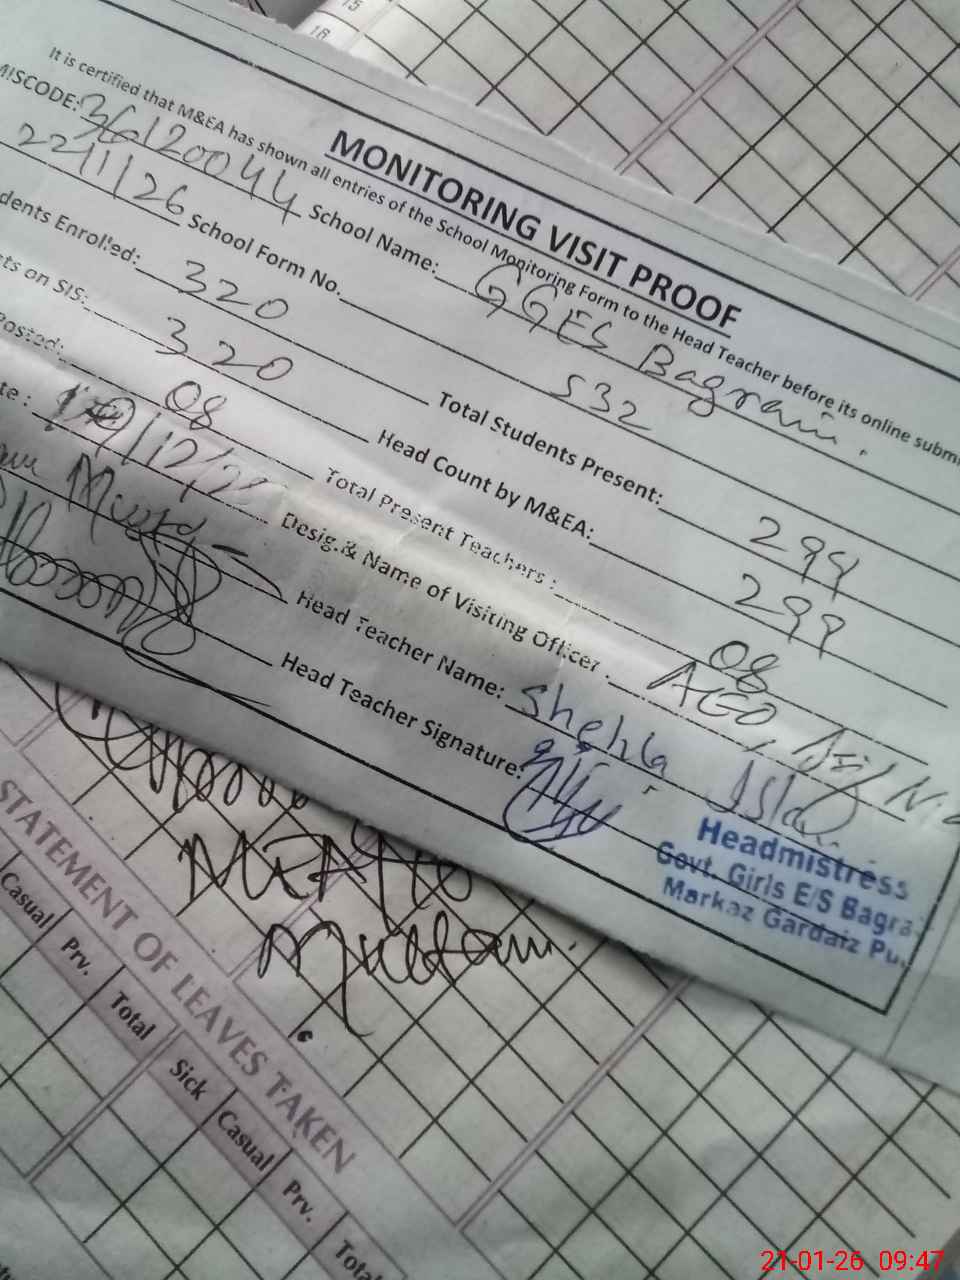 15
16
MONITORING VISIT PROOF
It is certified that M&EA has shown all entries of the School Monitoring Form to the Head Teacher before its online subm
MISCODE: 36120044 School Name: GGES Bagrain.
22/1/26 School Form No. 532
dents Enrolled: 320 Total Students Present: 299
ts on SIS: 320 Head Count by M&EA: 299
Posted: 08 Total Present Teachers : 08
te : /12/2 Desig.& Name of Visiting Officer : AEO,
Murad Head Teacher Name: Shehla Islam
Head Teacher Signature:
Headmistress
Govt. Girls E/S Bagra
Markaz Gardaiz Pu
STATEMENT OF LEAVES TAKEN
Casual Prv. Total Sick Casual Prv. Total
21-01-26 09:47